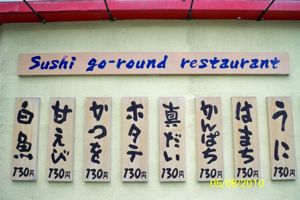 Sushi go-round restaurant
うに
130円
はまち
130円
かんぱち
130円
真だい
130円
ホタテ
130円
かつを
130円
甘えび
130円
白魚
130円
05/06/2010